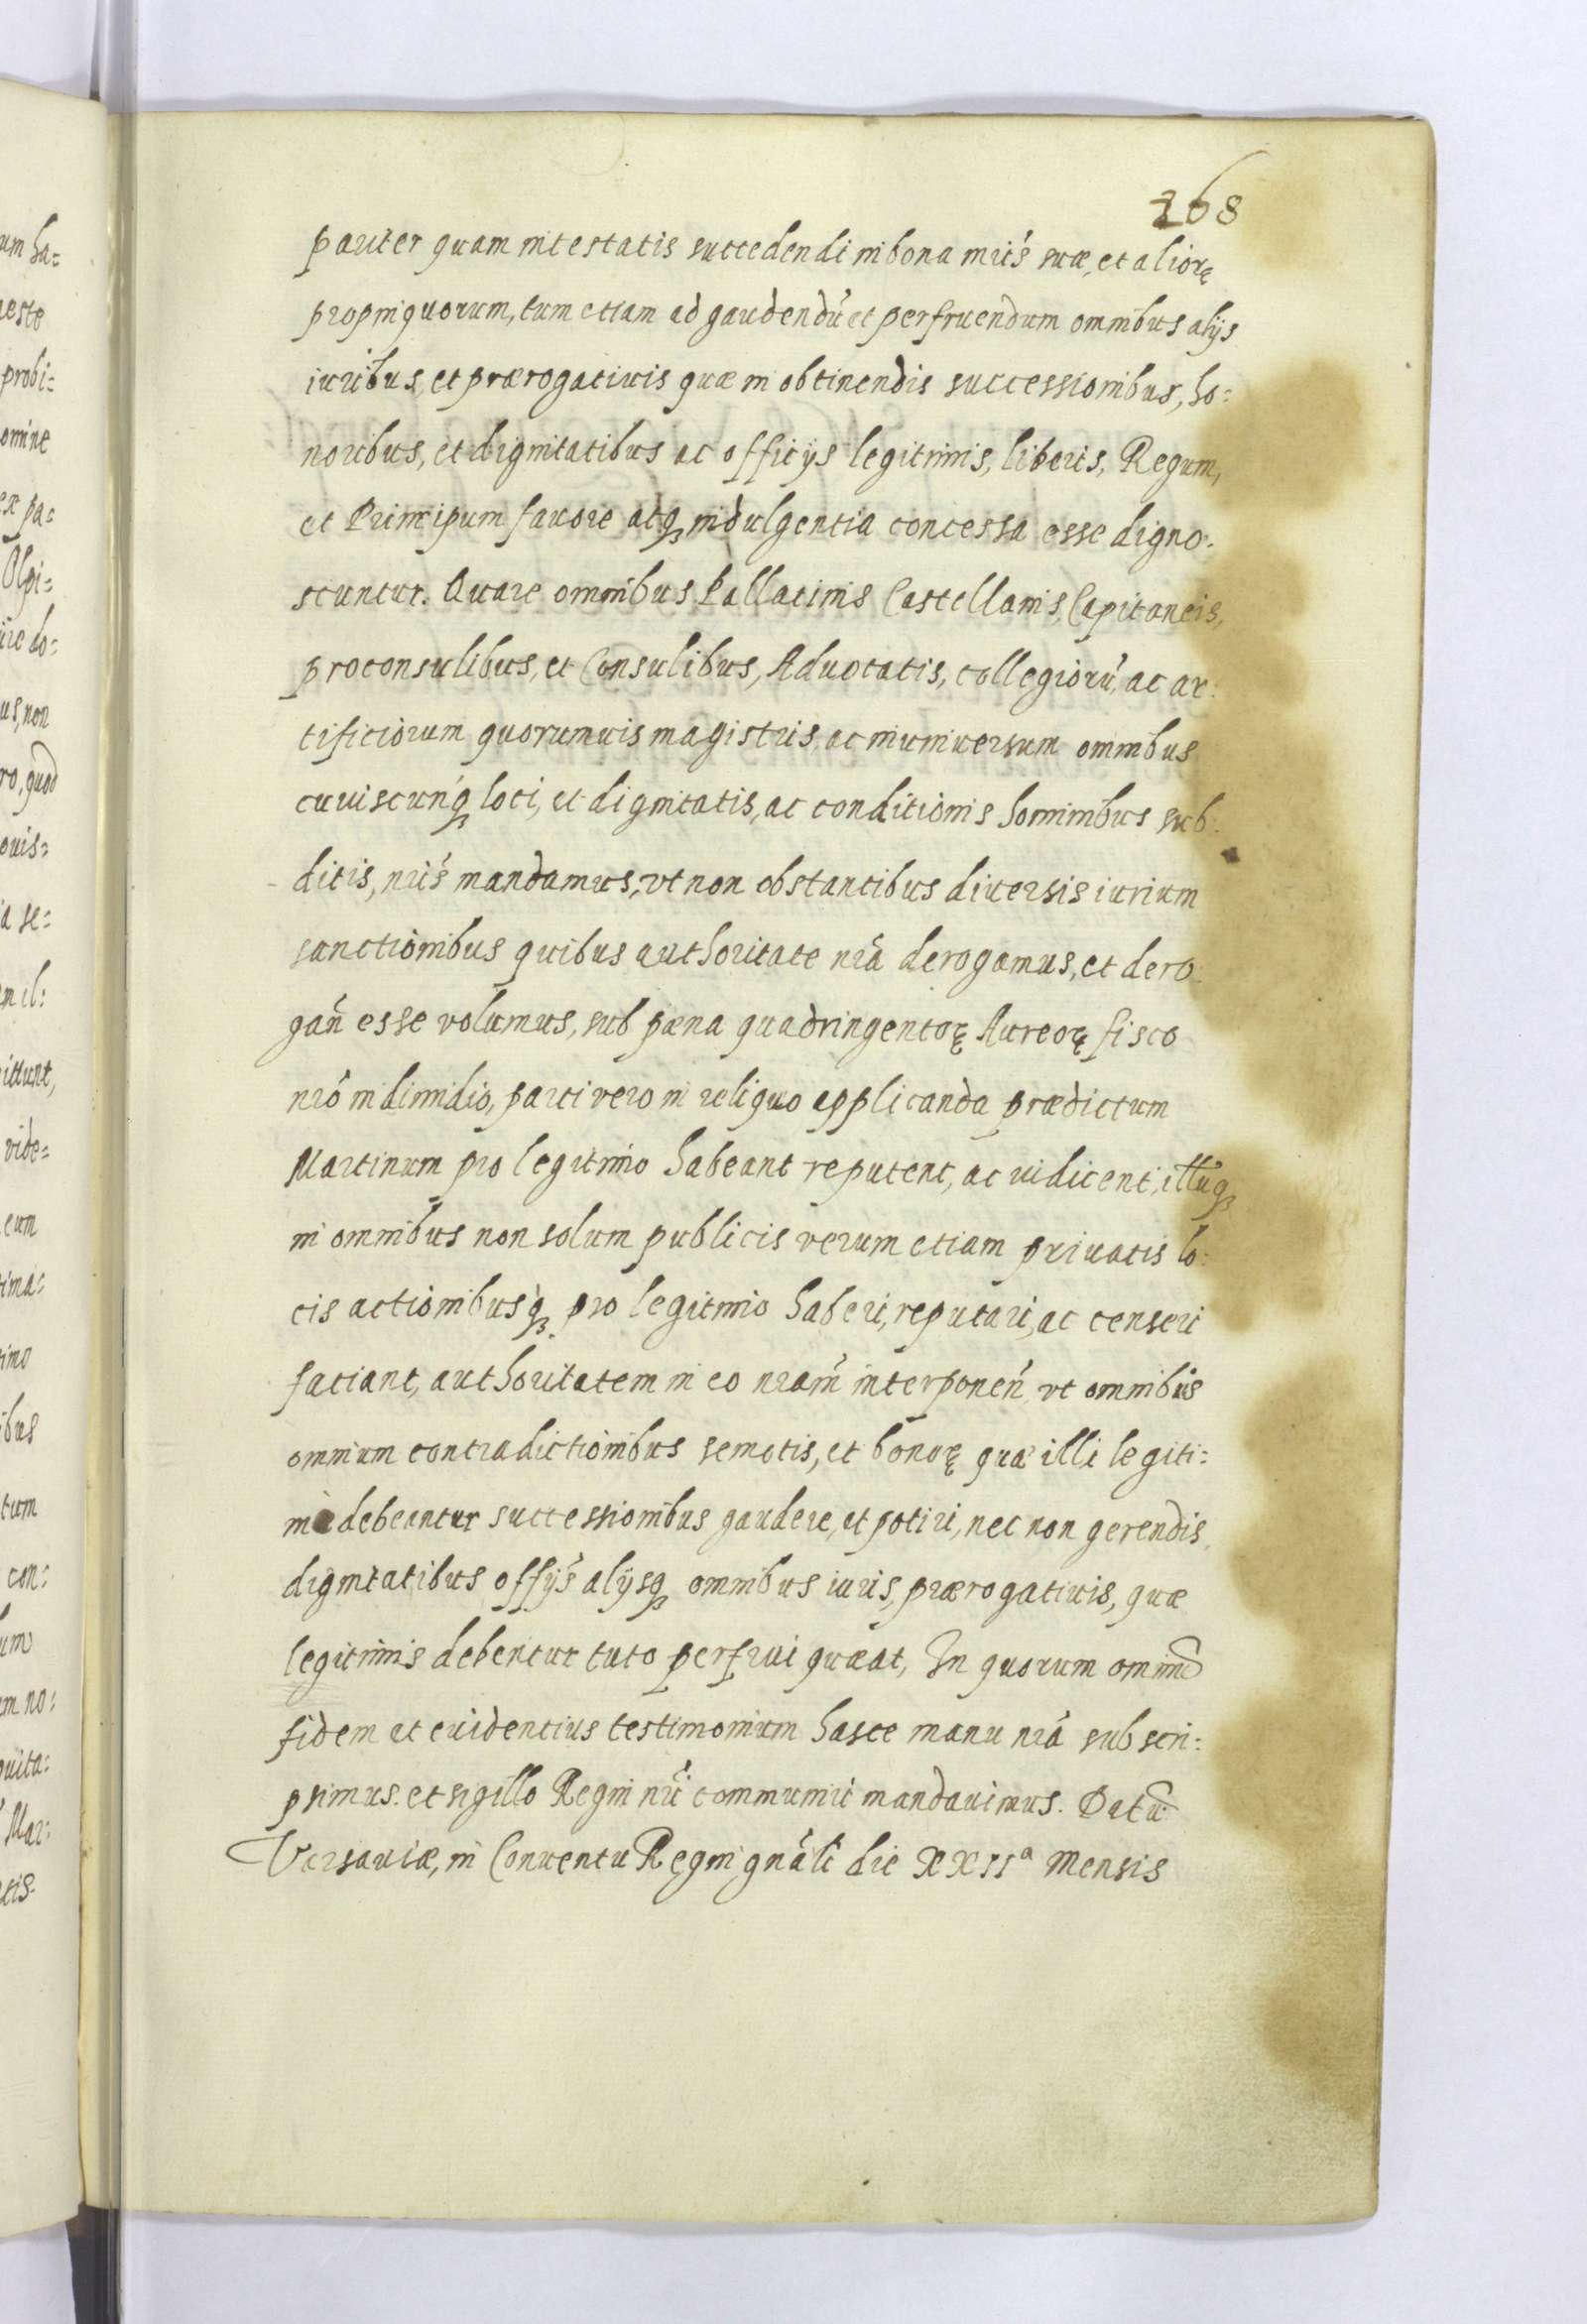 268
pariter quam intestatis succedendi in bona mr̃is suæ, et aliorę
propinquorum, tum etiam ad gaudendũ et perfruendum omnibus alijs
iuribus, et prærogatiuis quæ in obtinendis successionibus, ho=
noribus, et dignitatibus ac officijs legitimis, liberis, Regum,
et Principum fauore atq₃ indulgentia concessa esse digno=
scuntur. Quare omnibus Pallatinis Castellanis, Capitaneis,
proconsulibus, et Consulibus, Aduocatis, collegiorũ, ac ar=
tificiorum quorumuis magistris, ac in uniuersum omnibus
cuiuscunq₃ loci, et dignitatis, ac conditionis hominibus sub=
ditis, nr̃is mandamus, vt non obstantibus diuersis iurium
sanctionibus quibus authoritate nr̃a derogamus, et dero=
gañ esse volumus, sub pæna quadringentorę Aureorę fisco
nr̃o in dimidio, parti vero in reliquo applicanda prædictum
Martinum pro legitimo habeant reputent, ac iudicent, illũq₃
in omnibus non solum publicis verum etiam priuatis lo=
cis actionibusq₃ pro legitimo haberi, reputari, ac censeri
faciant, authoritatem in eo nr̃am interponeñ, vt omnibus
omnium contradictionibus semotis, et bonorę quæ illi legiti=
me debeantur successionibus gaudere, et potiri, nec non gerendis
dignitatibus offijs̃ alijsq₃ omnibus iuris, prærogatiuis, quæ
legitimis debentur tuto perfrui quæat, In quorum omniũ
fidem et euidentius testimonium hasce manu nr̃a subscri=
psimus. et sigillo Regni nr̃i communiri mandauimus. Datũ
Varsauiæ, in Conuentu Regni gnãli die XXIIa Mensis
um ha=
este
probi=
omine
ex pa=
Olpi=
us, non
ro, quod
ouis=
a se=
ittunt,
vide=
eum
tima=
timo
ibus
tum
con=
um
m no=
quita=
Mar=